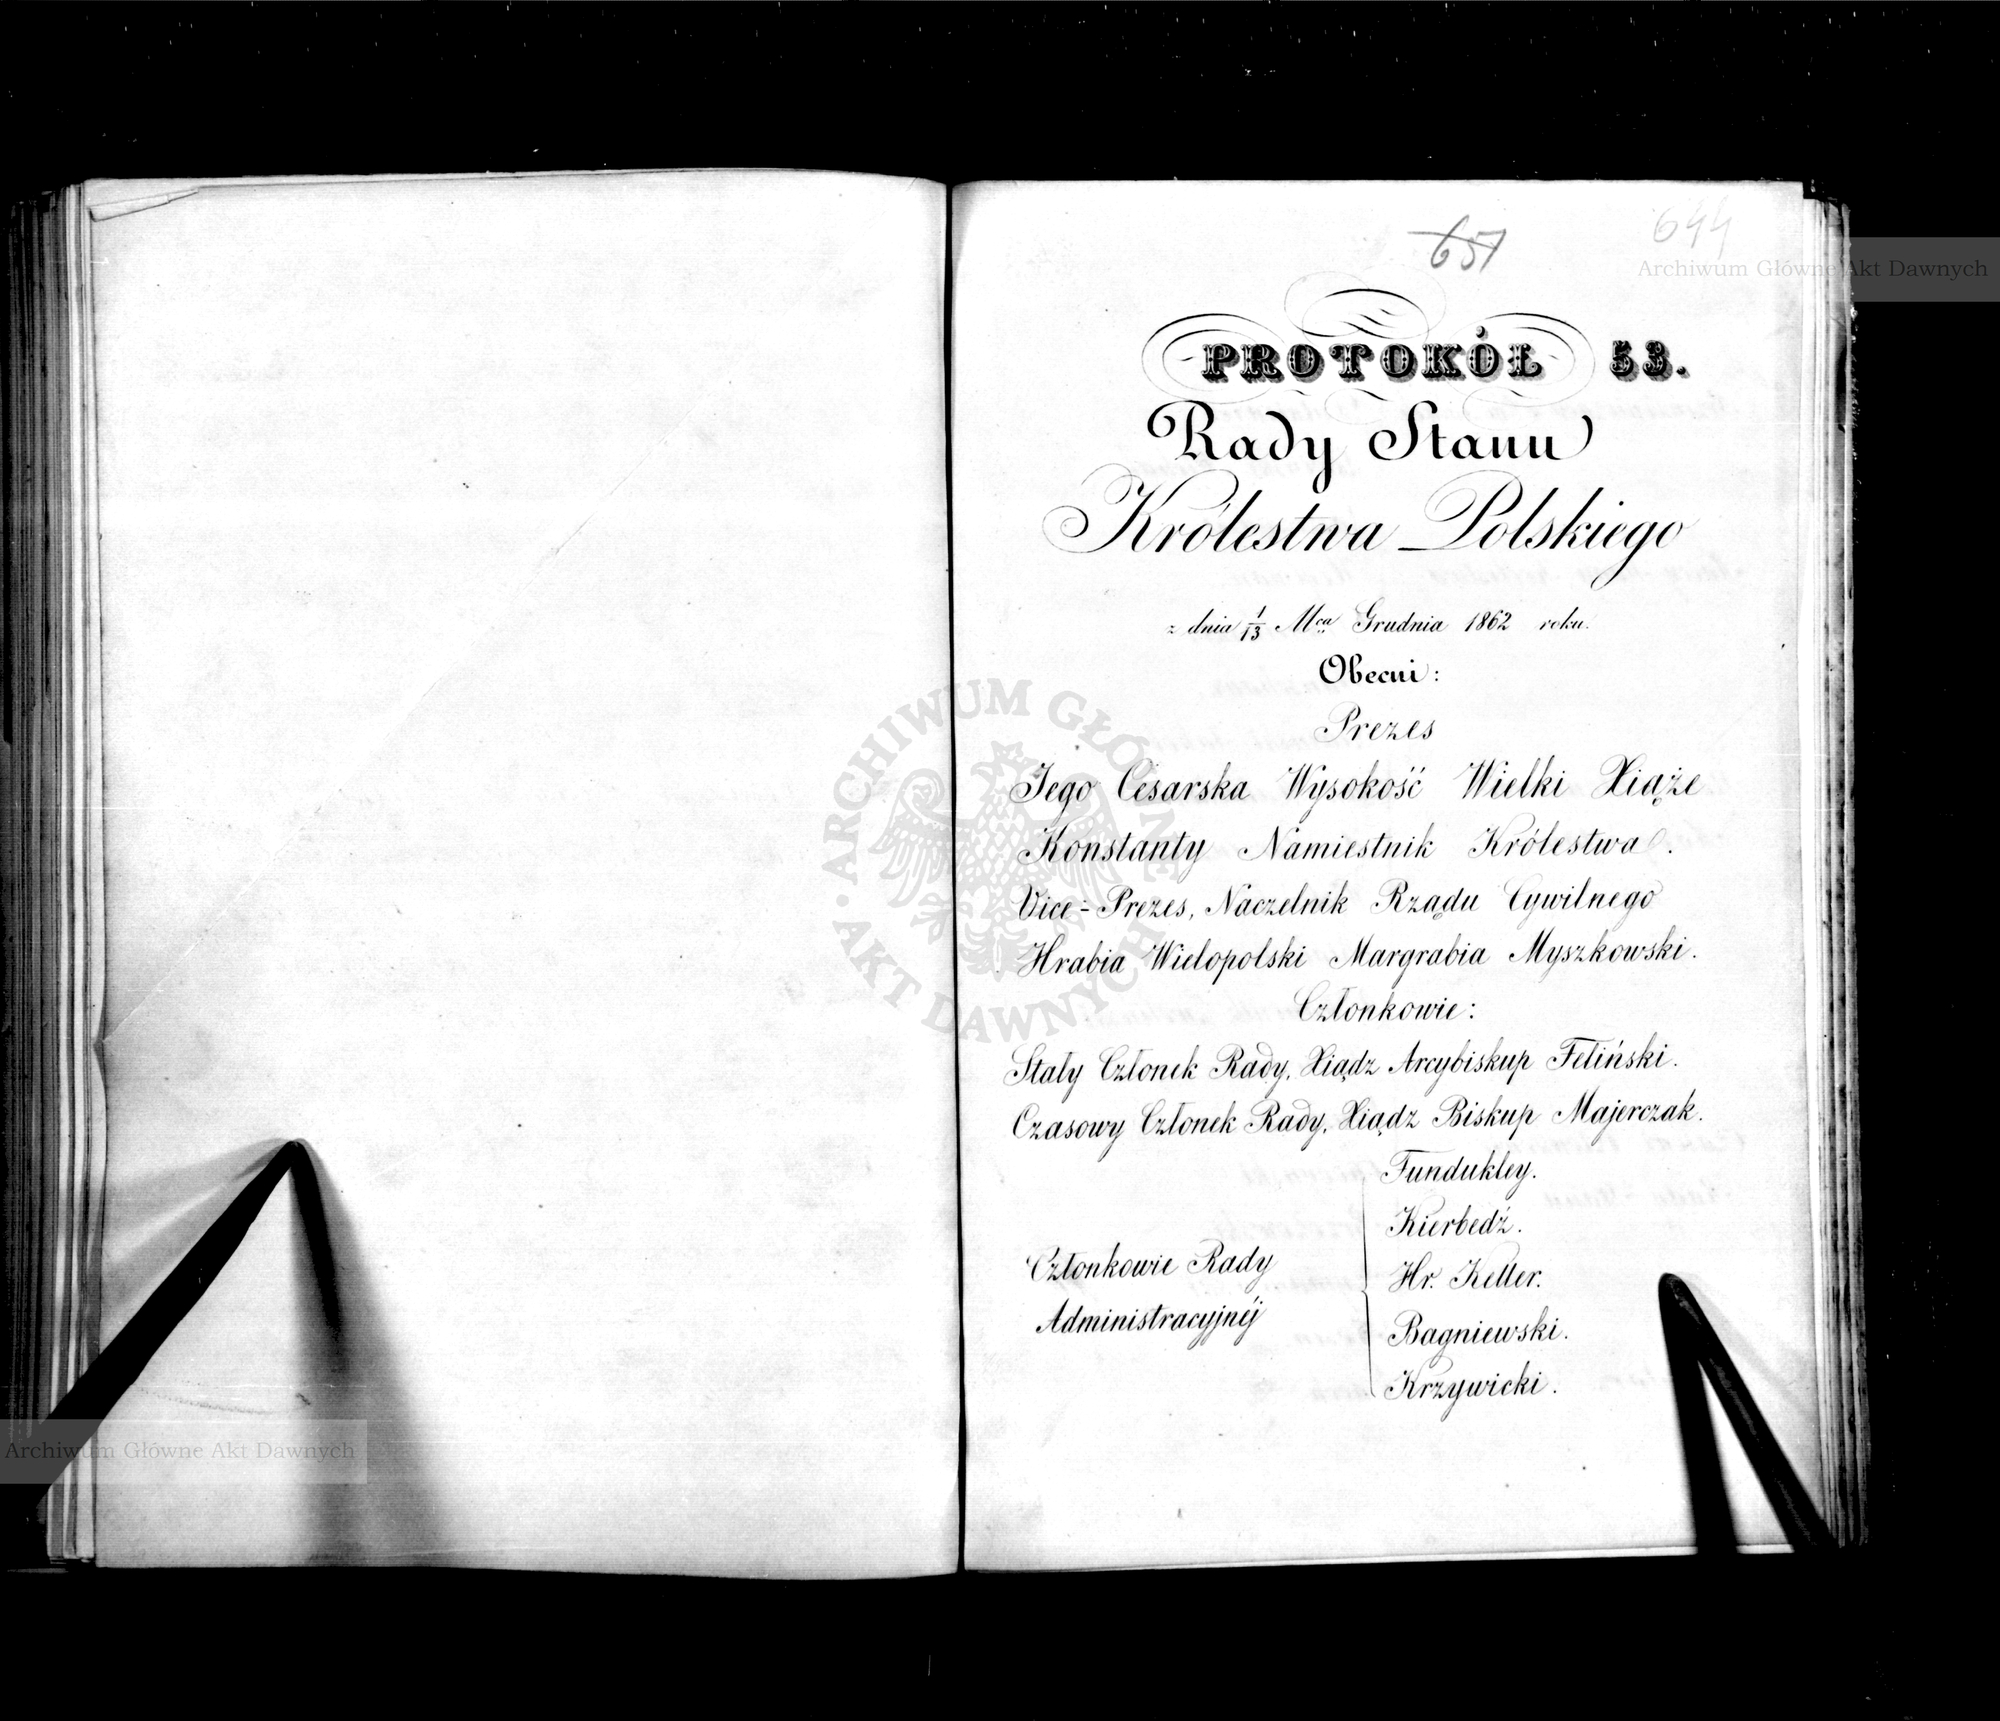 651
644
PROTOKÓŁ 53.
Rady Stanu
Królestwa Polskiego
z dnia 1/13 Mca Grudnia 1862 roku.
Obecni:
Prezes
Jego Cesarska Wysokość Wielki Xiąże
Konstanty Namiestnik Królestwa.
Vice-Prezes, Naczelnik Rządu Cywilnego
Hrabia Wielopolski Margrabia Myszkowski.
Członkowie:
Stały Członek Rady, Xiądz Arcybiskup Feliński.
Czasowy Członek Rady, Xiądz Biskup Majerczak.
Członkowie Rady
Administracyjnéj
Fundukley.
Kierbedź.
Hr. Keller.
Bagniewski.
Krzywicki.
Archiwum Główne Akt Dawnych
ARCHIWUM GŁÓWNE AKT DAWNYCH
Archiwum Główne Akt Dawnych